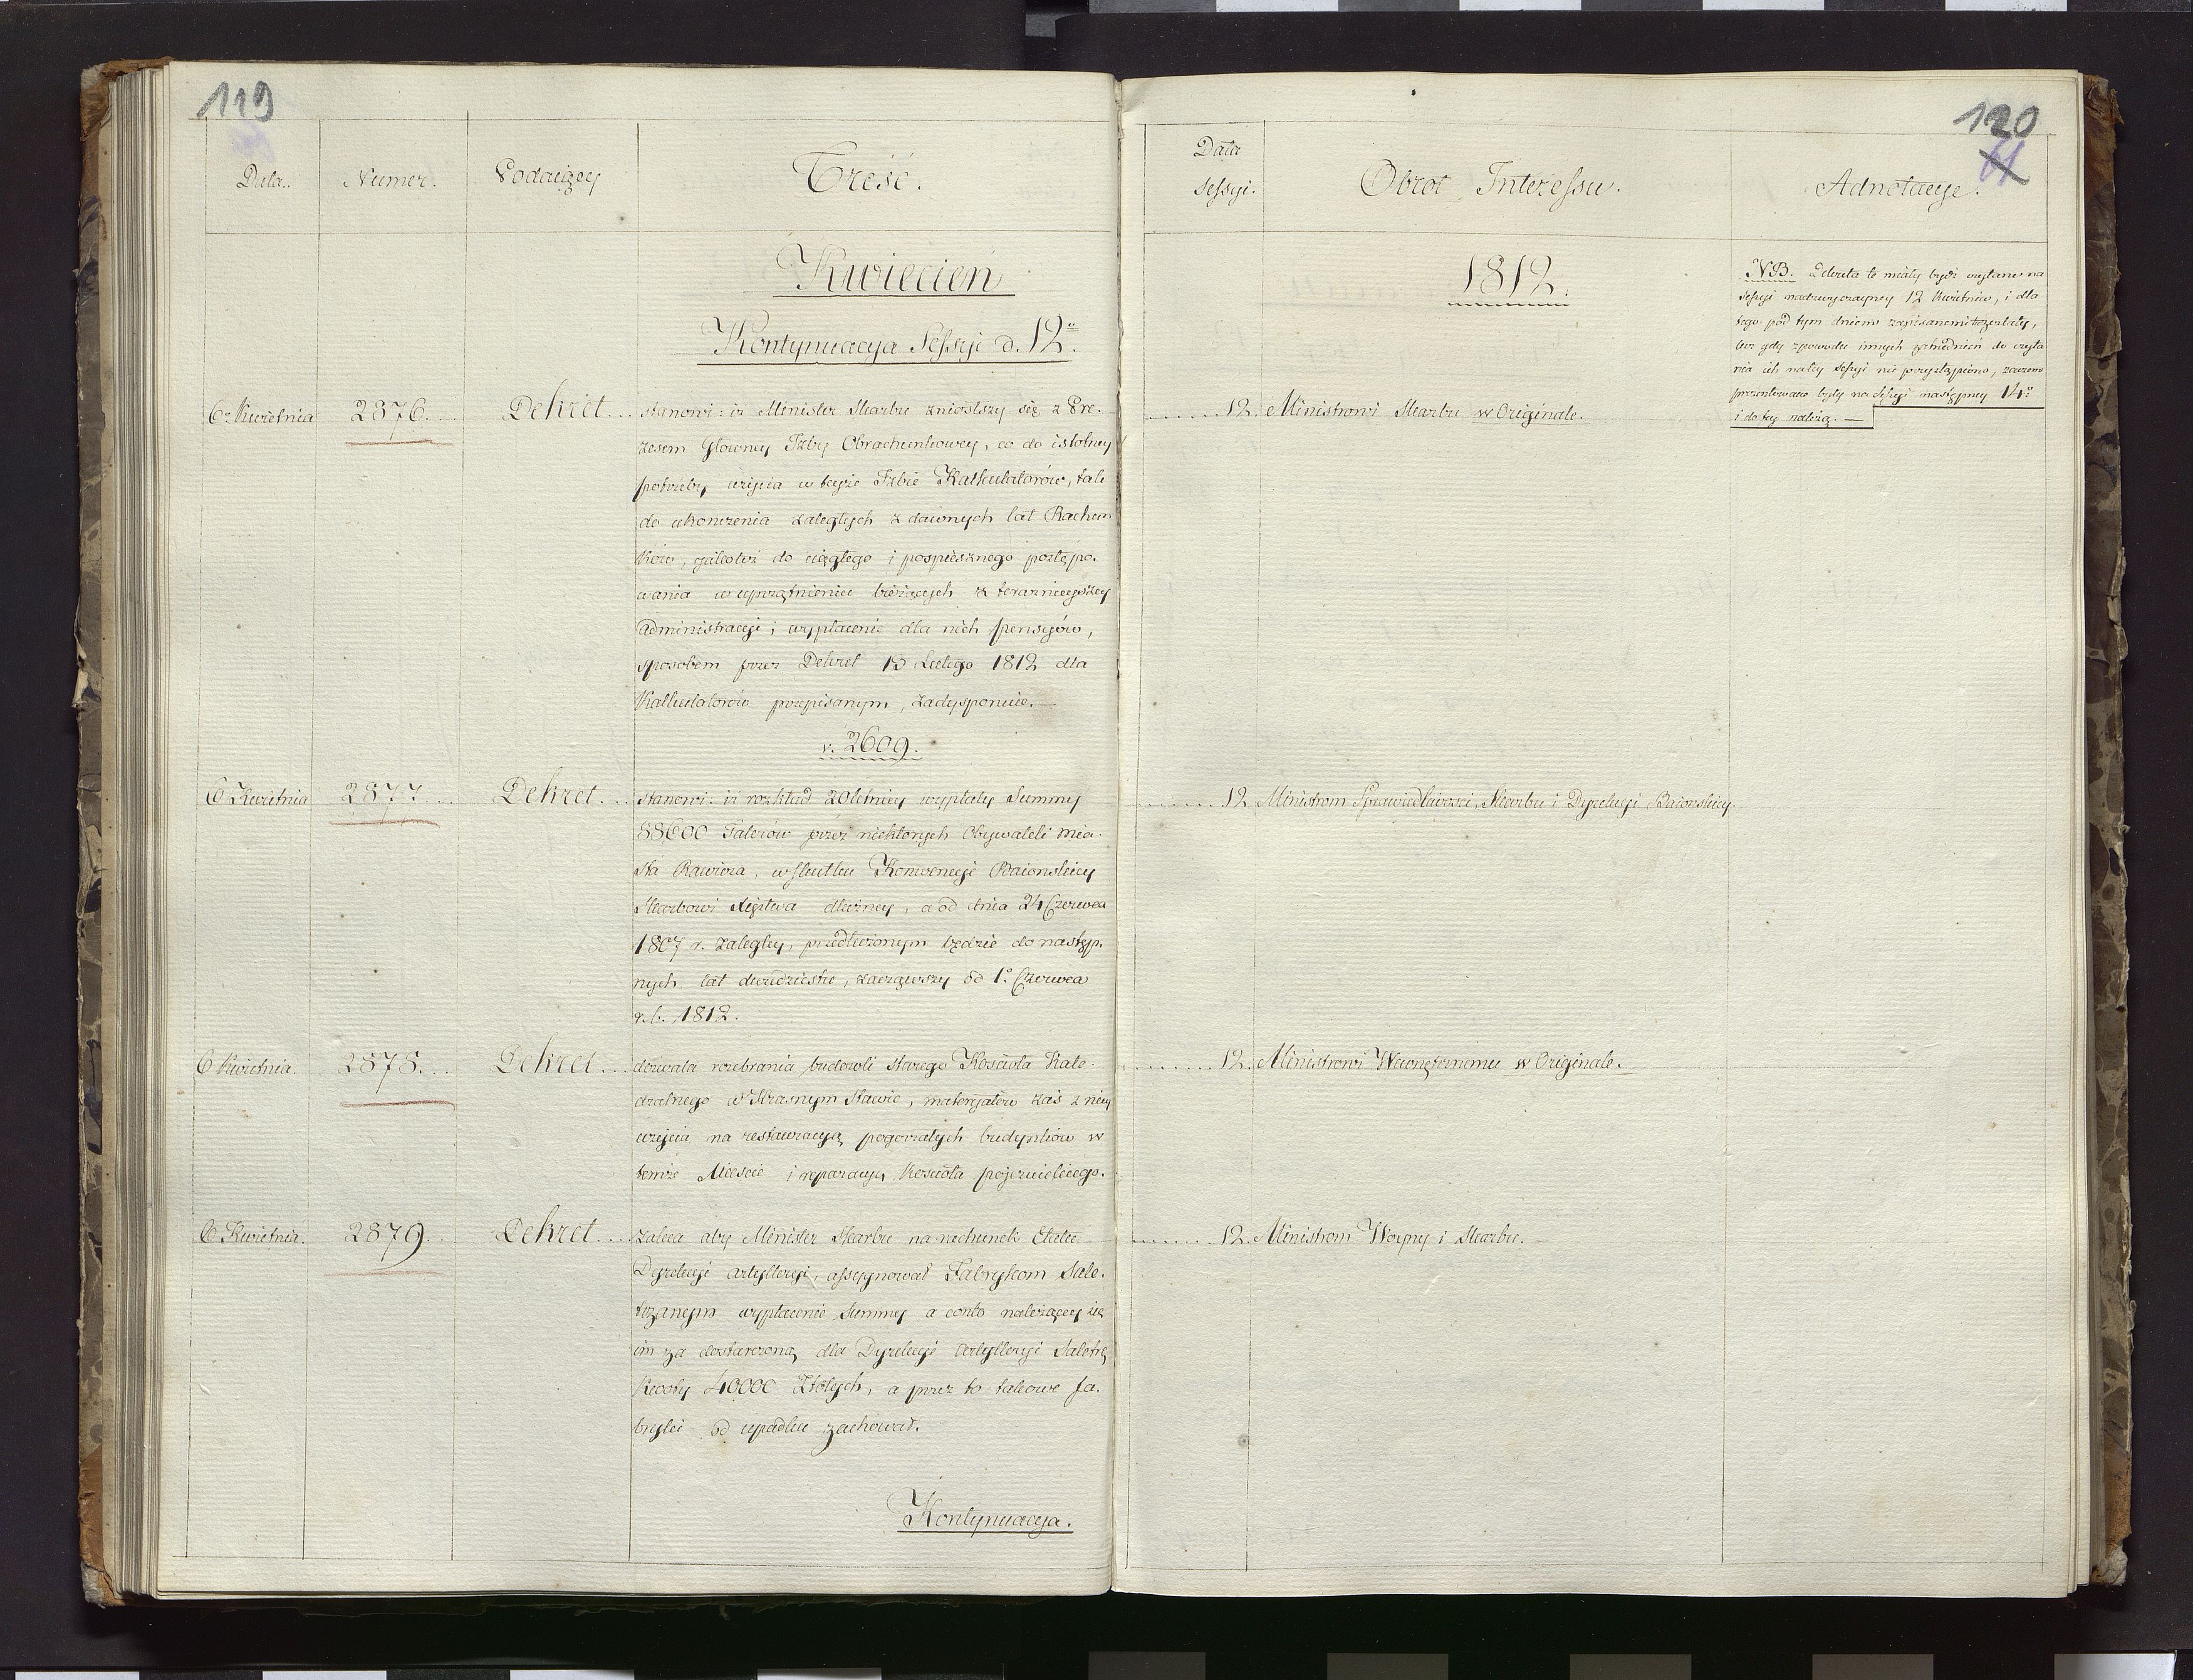 119
Data.
Numer.
Podaiący
Treść.
Kwiecień
Kontynuacya Sessyi d. 12º
6. Kwietnia
2876.
Dekret
stanowi: iż Minister Skarbu zniosłszy się z Pre-
zesem Głowney Izby Obrachunkowey, co do istotney
potrzeby użycia w teyże Izbie Kalkulatorów, tak
do ukonczenia zaległych z dawnych lat Rachun
ków, jakoteż do ciągłego i pospiesznego postępo-
wania w uprzątnieniu bieżących z teraznieyszey
administracyi; wypłacenie dla nich pensyów,
sposobem przez Dekret 13 Lutego 1812 dla
Kalkulatorów przepisanym, zadysponuie.
v. 2609.
6 Kwietnia
2877.
Dekret
stanowi: iż rozkład 20letniey wypłaty Summy
88,600 Talerów przez niektorych Obywateli mia-
sta Rawicza, w skutku Konwencyi Baionskiey
Skarbowi Xięstwa dłużney, a od dnia 24 Czerwca
1807 r. zaległey, przedłużonym będzie do następ-
nych lat dwudziestu, zacząwszy od 1º Czerwca
r.b. 1812.
6 Kwietnia.
2878.
Dekret
dozwala rozebrania budowli starego Kościoła Kate-
dralnego w Krasnym Stawie, materyałów zaś z niey
użycia na restauracyą pogorzałych budynków w
temże Mieście i reparacyą Kościoła pojezuickiego.
6 Kwietnia.
2879.
Dekret
zaleca aby Minister Skarbu na rachunek Etatu
Dyrekcyi artylleryi, assygnował Fabrykom Sale-
trzanym wypłacenie Summy a conto należącey się
im za dostarczoną dla Dyrekcyi Artylleryi Saletrę
Kwoty 40000 Złotych, a przez to takowe fa-
bryki od upadku zachował.
Kontynuacya.
120
61
Data
Sessyi.
Obrot Interessu.
Adnotacye.
1812.
NB. Dekreta te miały bydź czytane na
sessyi nadzwyczayney 12 Kwietnia, i dla
tego pod tym dniem zapisanemi zostały,
lecz gdy z powodu innych zatrudnień do czyta
nia ich na tey sessyi nie przystąpiono, zaczem
prezentowane były na Sessyi następney 14º
i do tey należą.
12. Ministrowi Skarbu w Originale.
12 Ministrom Sprawiedliwości, Skarbu i Dyrekcyi Baionskiey.
12. Ministrowi Wewnętrznemu w Originale.
12. Ministrom Woyny i Skarbu.